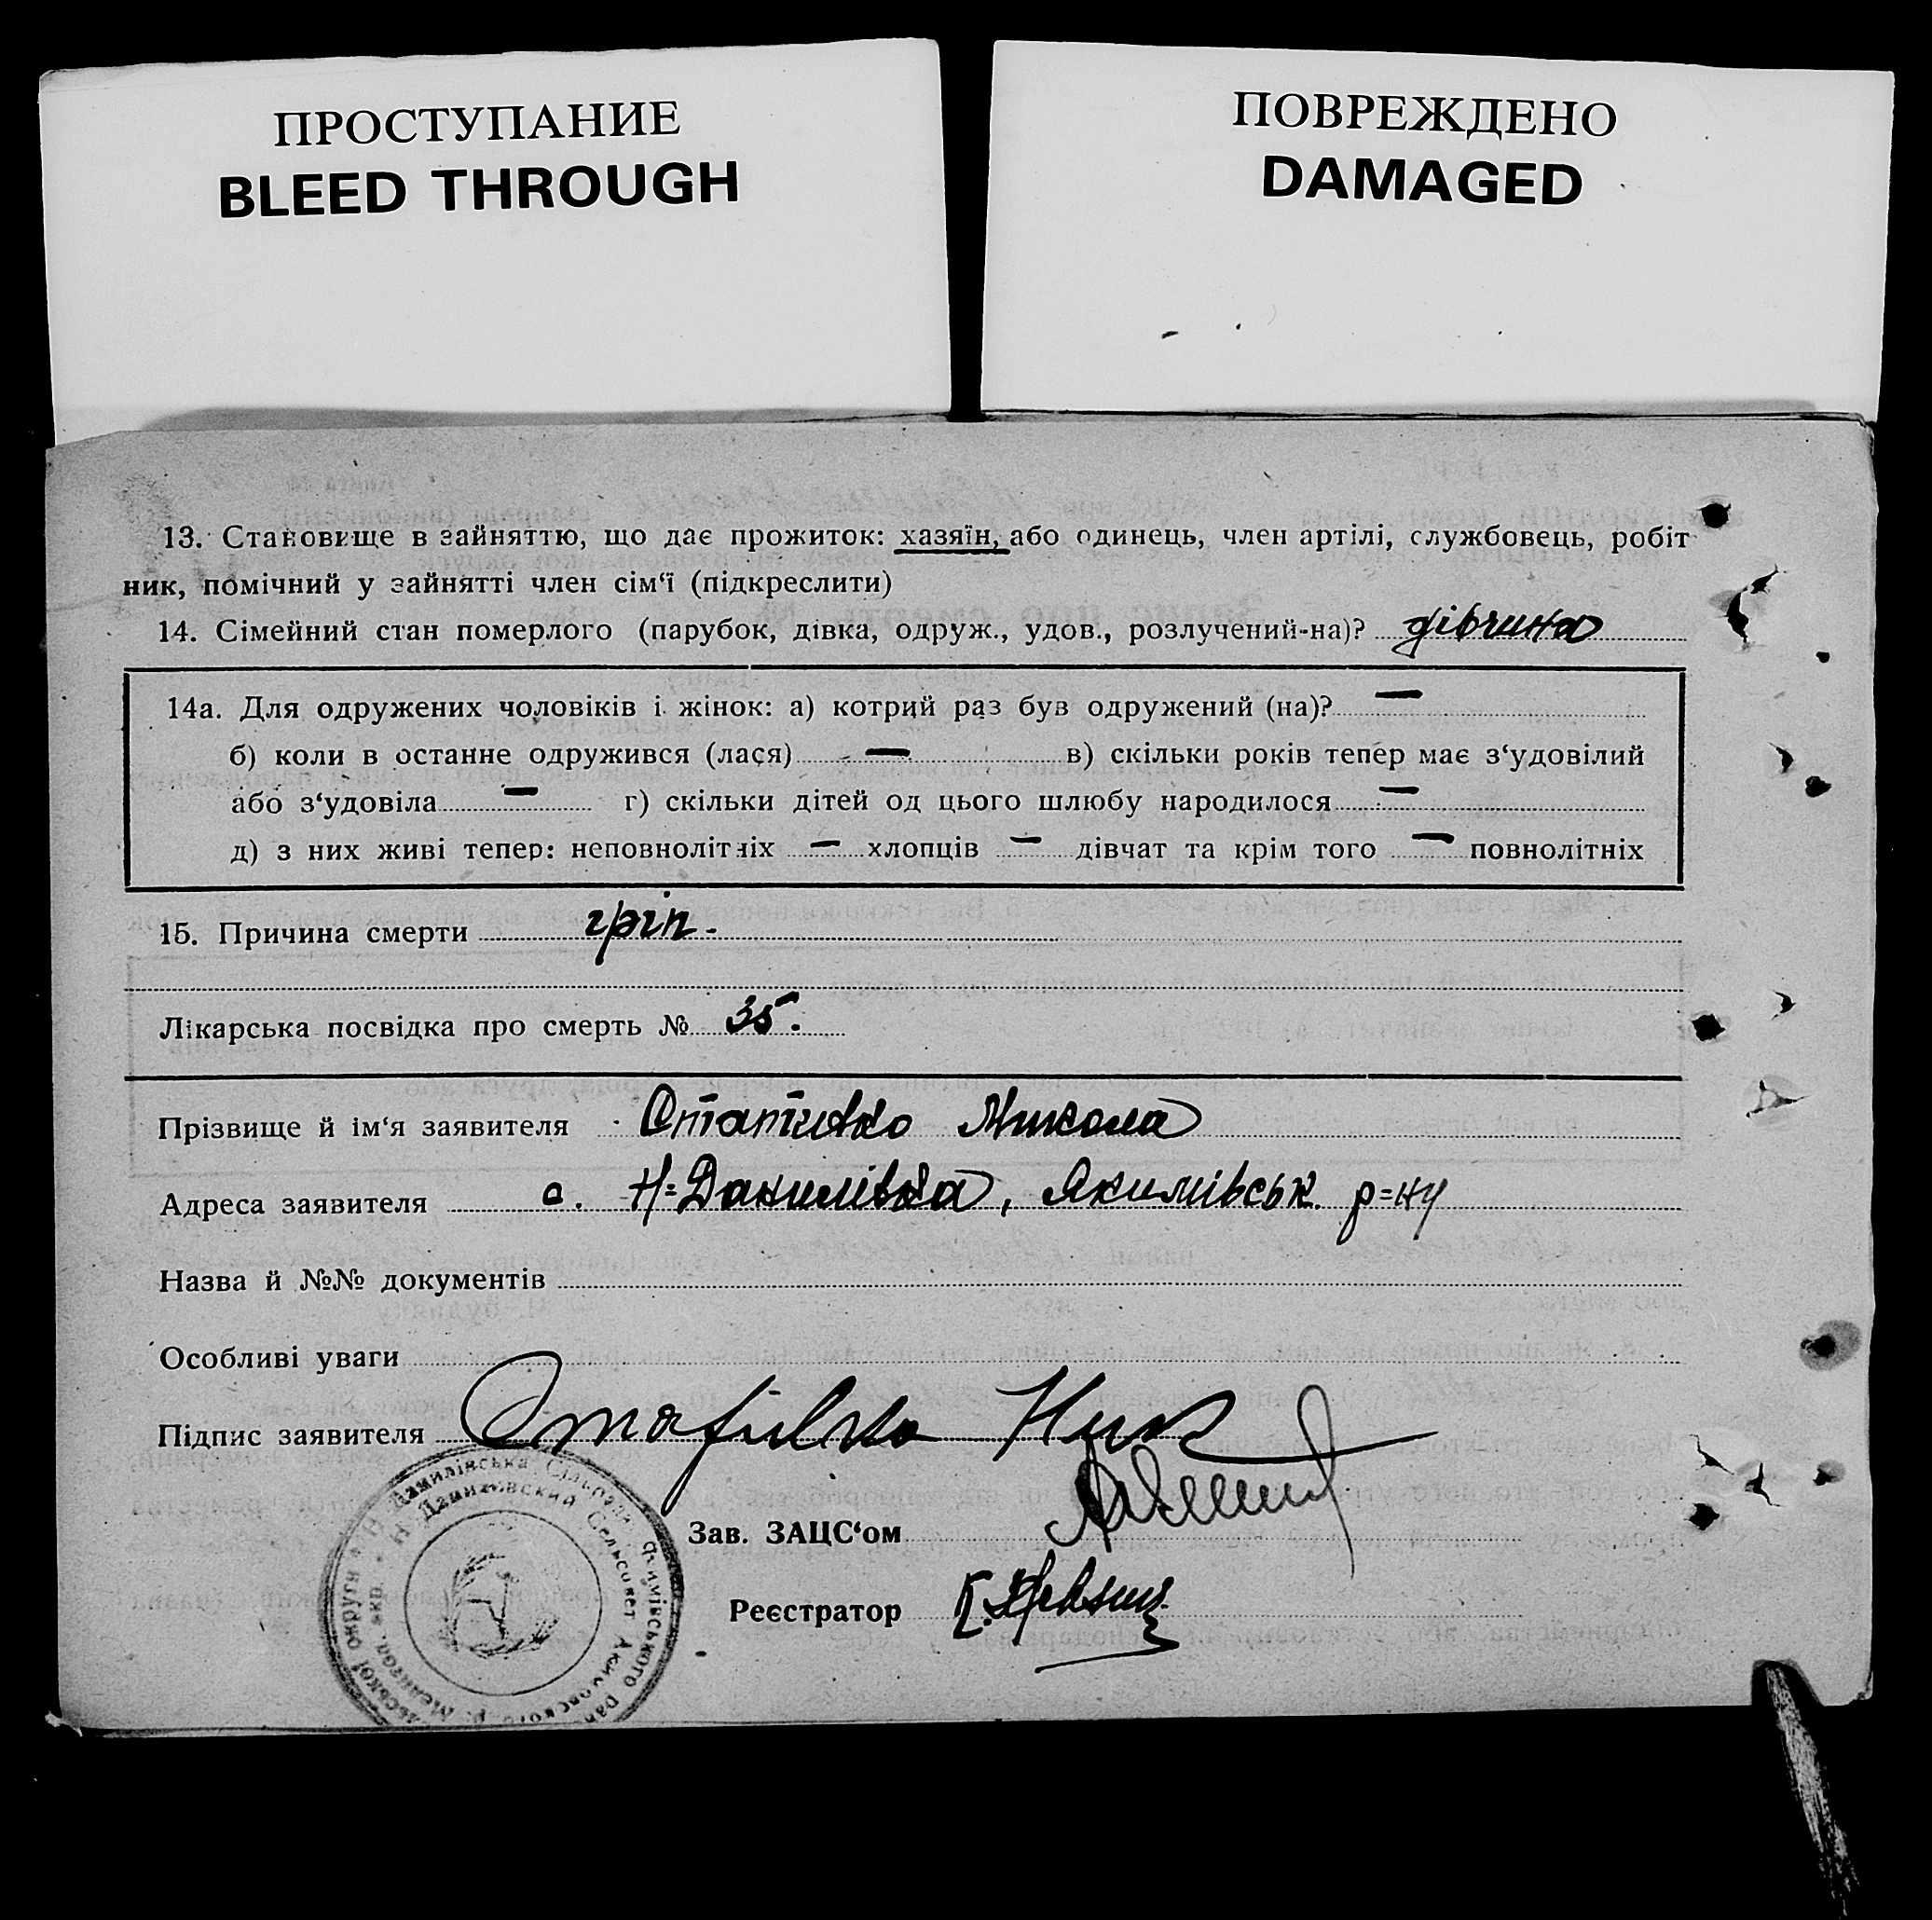 ПРОСТУПАНИЕ
BLEED THROUGH
ПОВРЕЖДЕНО
DAMAGED
13. Становище в зайняттю, що дає прожиток: хазяїн, або одинець, член артілі, службовець, робіт
ник, помічний у зайнятті член сім‘ї (підкреслити)
14. Сімейний стан померлого (парубок, дівка, одруж., удов., розлучений-на)? дівчина
14а. Для одружених чоловіків і жінок: а) котрий раз був одружений (на)? —
б) коли в останне одружився (лася) — в) скільки років тепер має з‘удовілий
або з‘удовіла — г) скільки дітей од цього шлюбу народилося —
д) з них живі тепер: неповнолітніх — хлопців — дівчат та крім того — повнолітніх
15. Причина смерти гріп.
Лікарська посвідка про смерть № 35.
Прізвище й ім‘я заявителя Стативко Микола
Адреса заявителя с. Н=Данилівка, Якимівськ. р=ну
Назва й №№ документів
Особливі уваги
Підпис заявителя Стативко Ник
Зав. ЗАЦС‘ом
Реєстратор К.
Н Данилівська Сільрада Якимівського Рай
льської округи
Н Даниловский Сельсовет Акимовского р. Мелитоп. окр.